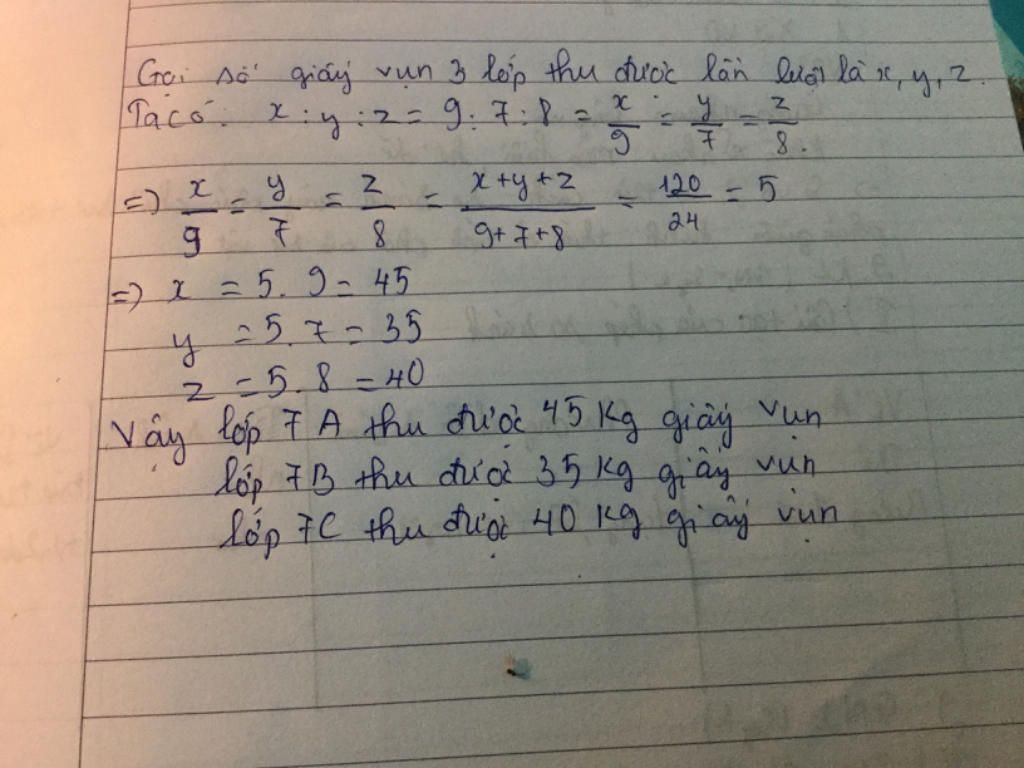 Gọi số giấy vụn 3 lớp thu được lần lượt là x, y, z.
Ta có: x : y : z = 9 : 7 : 8 = x/9 = y/7 = z/8.
=> x/9 = y/7 = z/8 = x+y+z/9+7+8 = 120/24 = 5
=> x = 5. 9 = 45
y = 5. 7 = 35
z = 5. 8 = 40
Vậy lớp 7A thu được 45 Kg giấy vụn
lớp 7B thu được 35 kg giấy vụn
lớp 7C thu được 40 kg giấy vụn